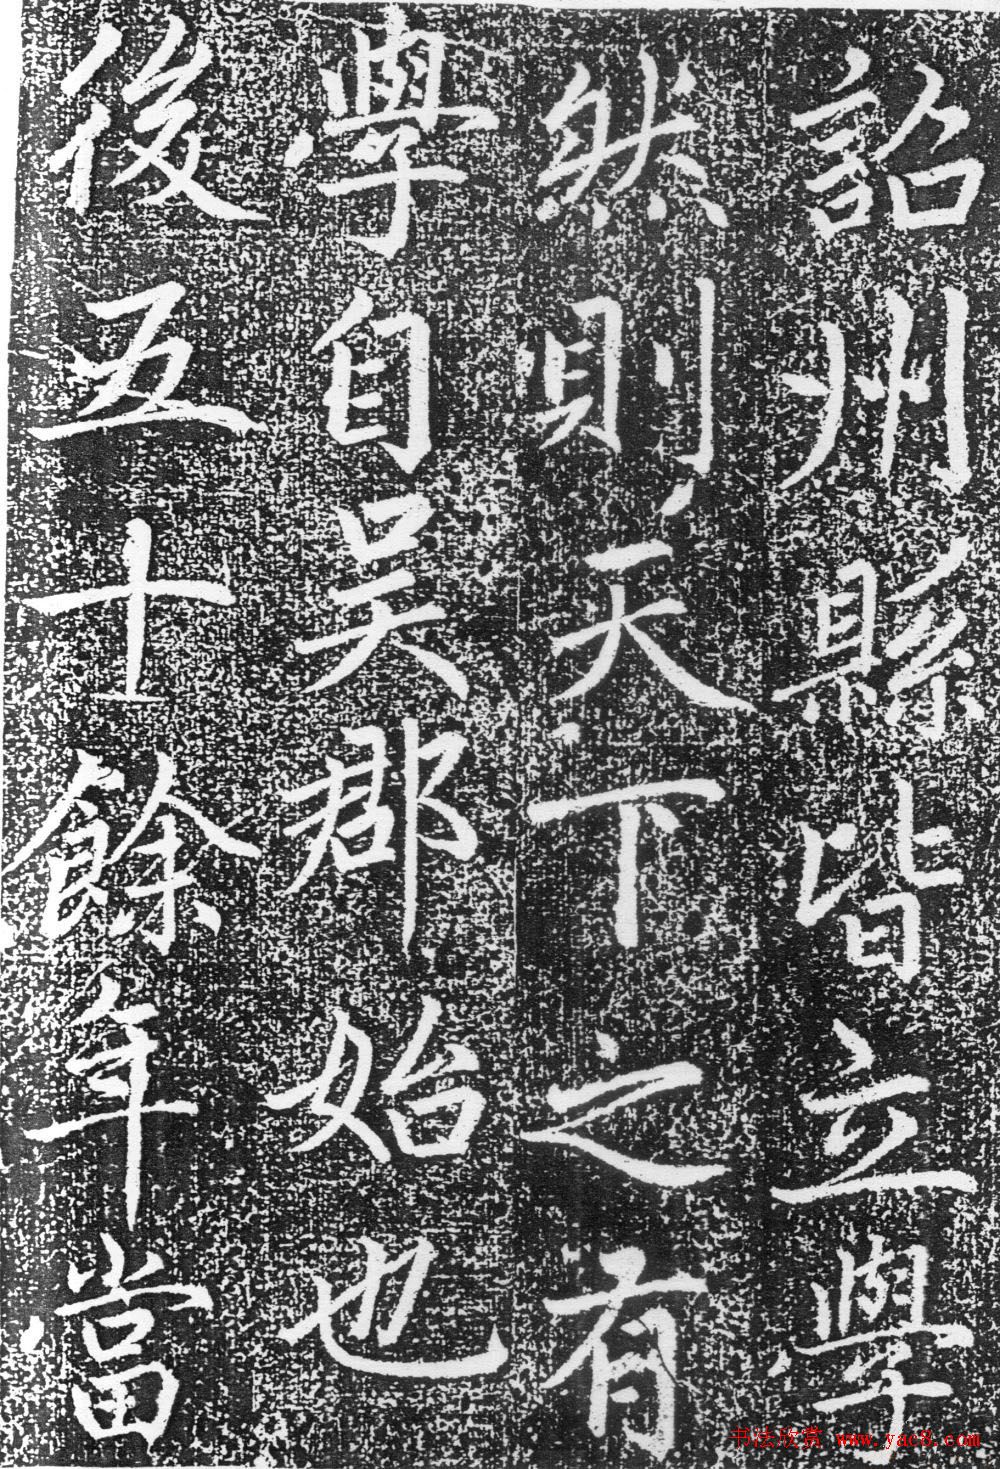 詔州縣皆立學
然則天下之有
學自吳郡始也
後五十餘年當
书法欣赏 www.yac8.com